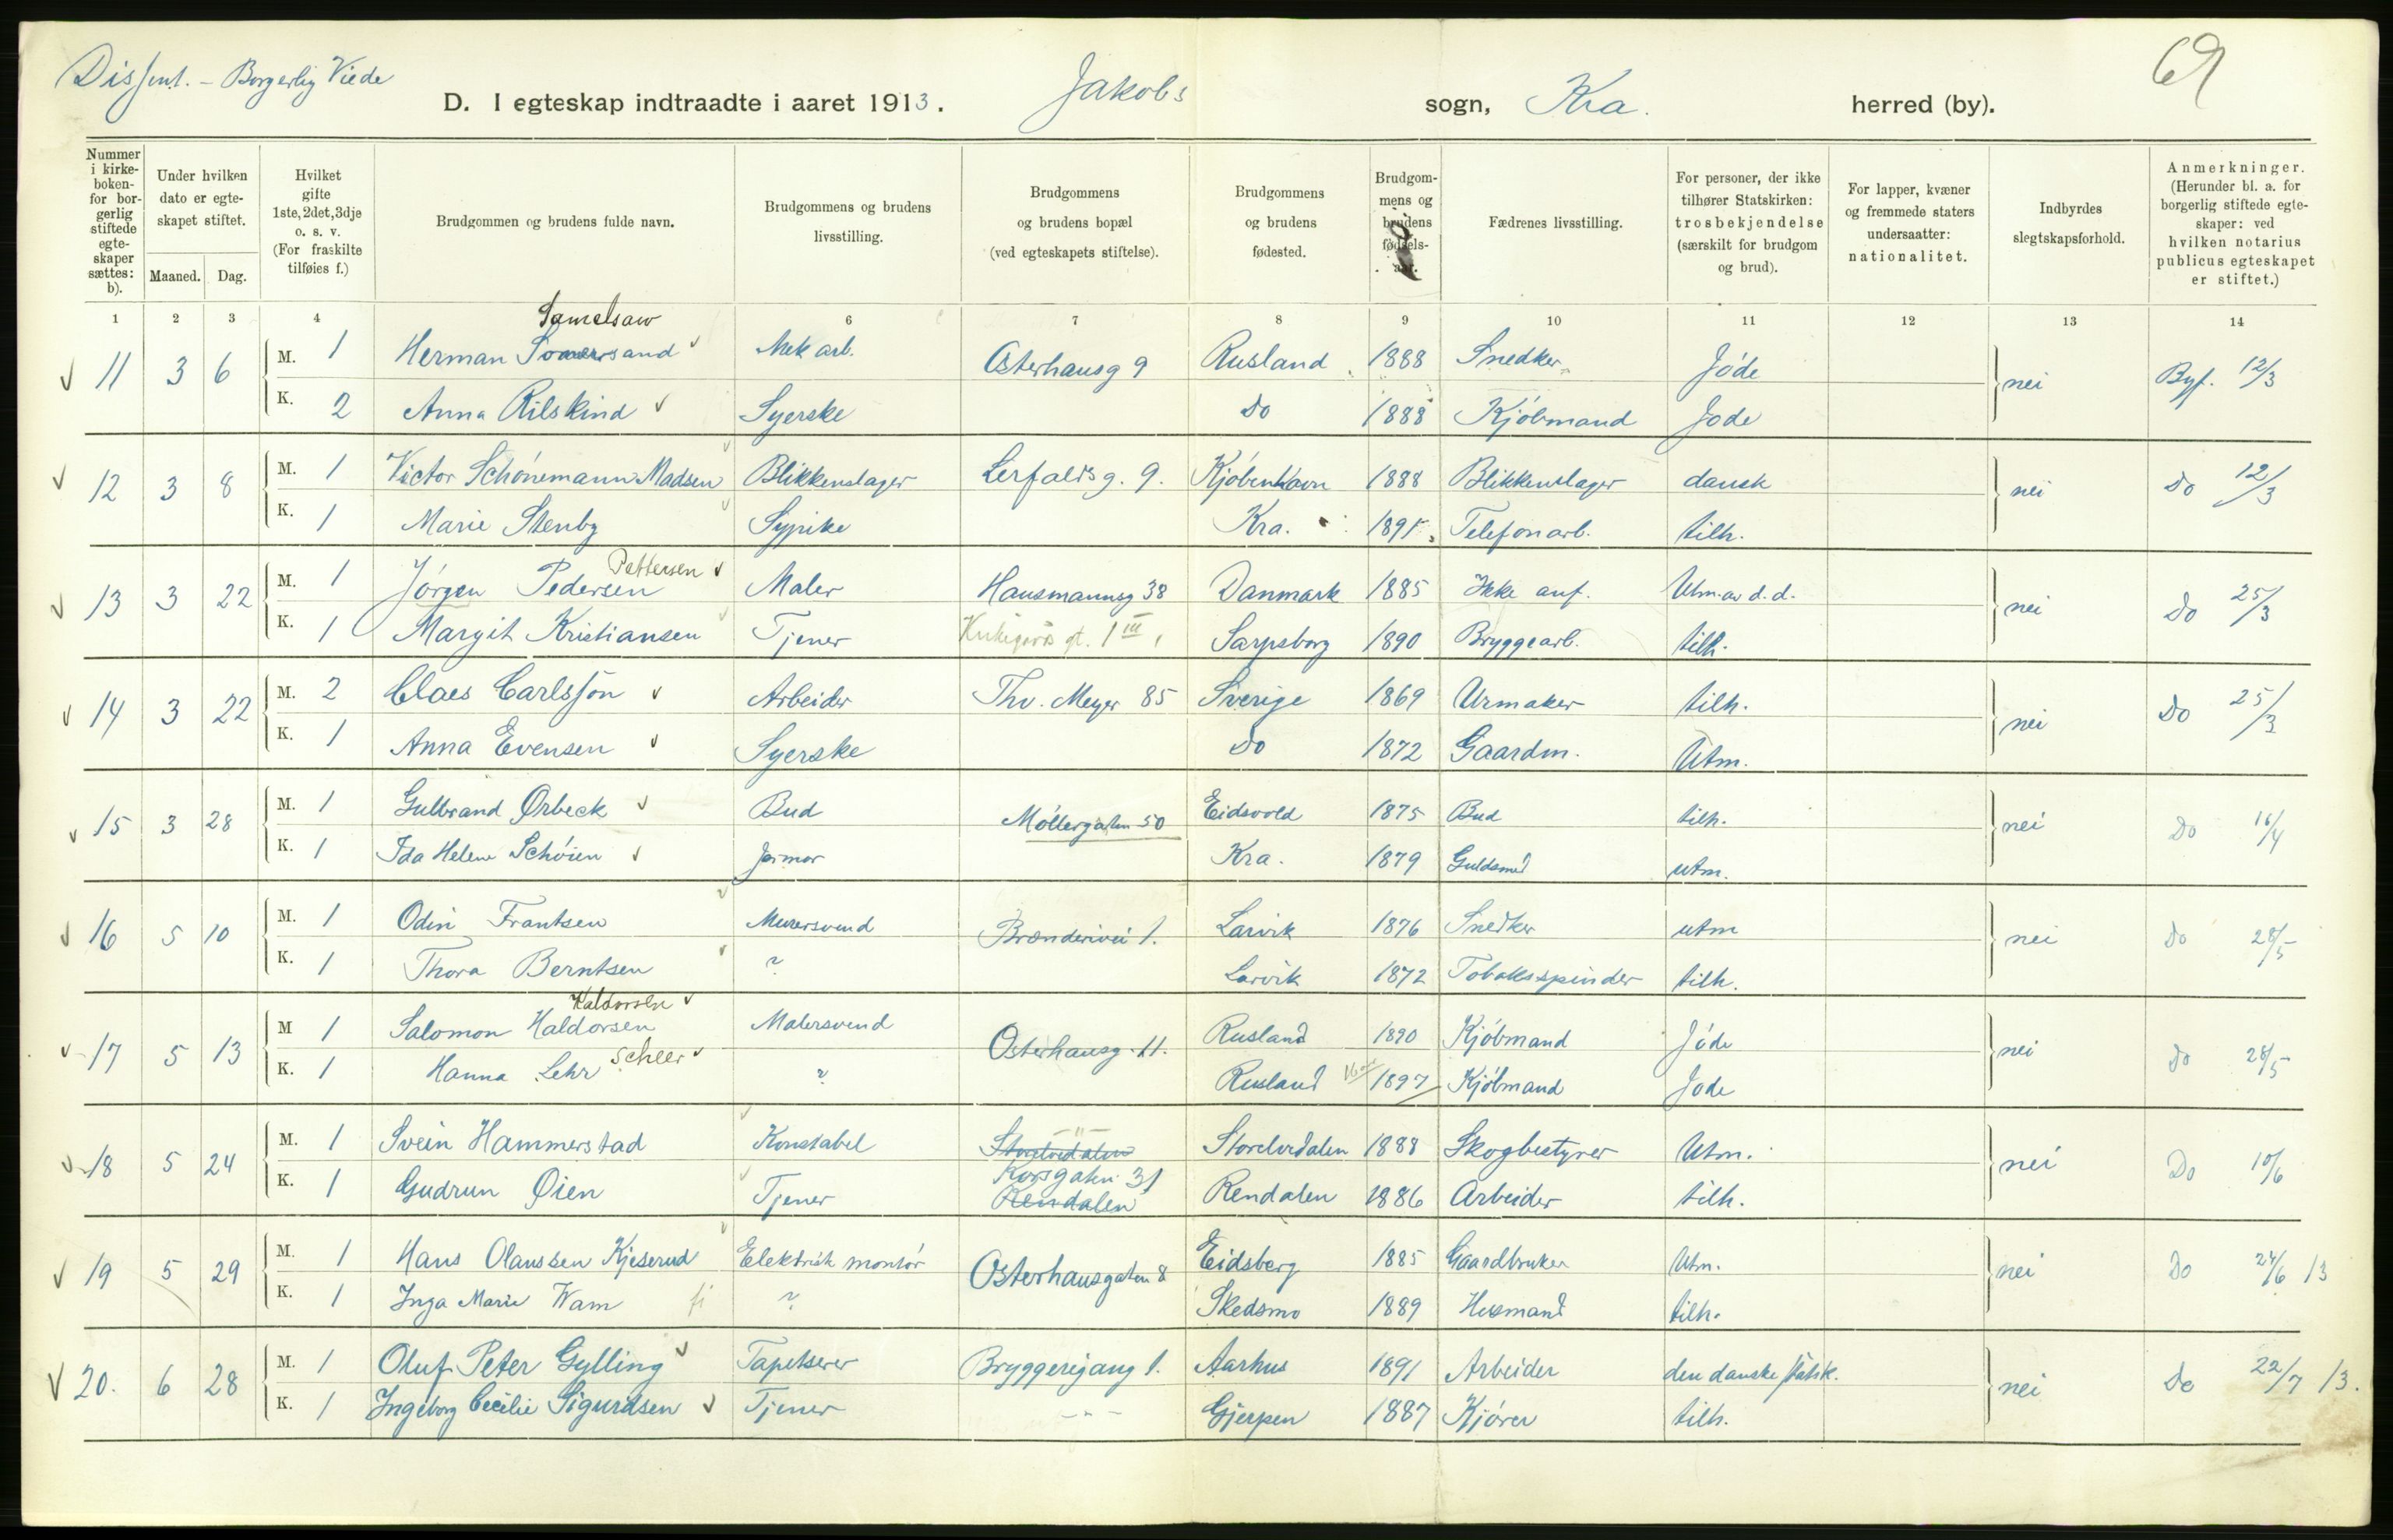 Dissent. – Borgerlig Viede
D. I egteskap indtraadte i aaret 1913. Jakobs sogn, Kra. herred (by).
69
Nummer i kirkeboken for borgerlig stiftede egteskaper sættes: b).
Under hvilken dato er egteskapet stiftet.
Maaned. Dag.
Hvilket gifte 1ste, 2det, 3dje o. s. v. (For fraskilte tilføies f.)
Brudgommen og brudens fulde navn.
Brudgommens og brudens livsstilling.
Brudgommens og brudens bopæl (ved egteskapets stiftelse).
Brudgommens og brudens fødested.
Brudgommens og brudens fødselsaar.
Fædrenes livsstilling.
For personer, der ikke tilhører Statskirken: trosbekjendelse (særskilt for brudgom og brud).
For lapper, kvæner og fremmede staters undersaatter: nationalitet.
Indbyrdes slegtskapsforhold.
Anmerkninger. (Herunder bl. a. for borgerlig stiftede egteskaper: ved hvilken notarius publicus egteskapet er stiftet.)
1 2 3 4 6 7 8 9 10 11 12 13 14
Samelsaw
11 3 6 M. 1 Herman Mek arb. Osterhausg 9 Rusland 1888 Snedker Jøde nei Byf. 12/3
K. 2 Anna Rilskind Syerske Do 1888 Kjøbmand Jøde
12 3 8 M. 1 Victor Schønemann Madsen Blikkenslager Lerfaldsg. 9. Kjøbenhavn 1888 Blikkenslager dansk nei Do 12/3
K. 1 Marie Stenby Sypike Kra. 1891 Telefonarb. tilh.
Pettersen
13 3 22 M. 1 Jørgen Pedersen Maler Hausmannsg 38 Danmark 1885 Ikke anf. Utm. av d. d. nei Do 25/3
K. 1 Margit Kristiansen Tjener gt. 1 III Sarpsborg 1890 Bryggearb. tilh.
14 3 22 M. 2 Claes Carlssøn Arbeider Thv. Meyer 85 Sverige 1869 Urmaker tilh. nei Do 25/3
K. 1 Anna Evensen Syerske Do 1872 Gaardm. Utm.
15 3 28 M. 1 Gulbrand Ørbeck Bud Møllergaten 50 Eidsvold 1875 Bud tilh. nei Do 16/4
K. 1 Ida Helene Schøien Jormor Kra. 1879 Guldsmed utm.
16 5 10 M. 1 Odin Frantsen Murersvend Brænderivei 1. Larvik 1876 Snedker utm nei Do 28/5
K. 1 Thora Berntsen ? Larvik 1872 Tobaksspinder tilh.
Kaldorsen
17 5 13 M 1 Salomon Haldorsen Malersvend Osterhausg. 11. Rusland 1890 Kjøbmand Jøde nei Do 28/5
K. 1 Hanna Lehr Scheer ? Rusland 1897 Kjøbmand Jøde
18 5 24 M. 1 Svein Hammerstad Konstabel Storelvedalen -"- Storelvdalen 1888 Skogbestyrer Utm. nei Do 10/6
Korsgaten 31
K. 1 Gudrun Øien Tjener Rendalen Rendalen 1886 Arbeider tilh.
19 5 29 M. 1 Hans Olaussen Kjeserud Elektrisk montør Osterhausgaten 8 Eidsberg 1885 Gaardbruker Utm. nei Do 24/6 13
K. 1 Inga Marie Wam ? Skedsmo 1889 Husmand tilh.
20. 6 28 M. 1 Oluf Peter Gylling Tapetserer Bryggerigang 1. Aarhus 1891 Arbeider den danske statsk. nei Do 22/7 13.
K. 1 Ingeborg Cecilie Sigurdsen Tjener -"- Gjerpen 1887 Kjører tilh.